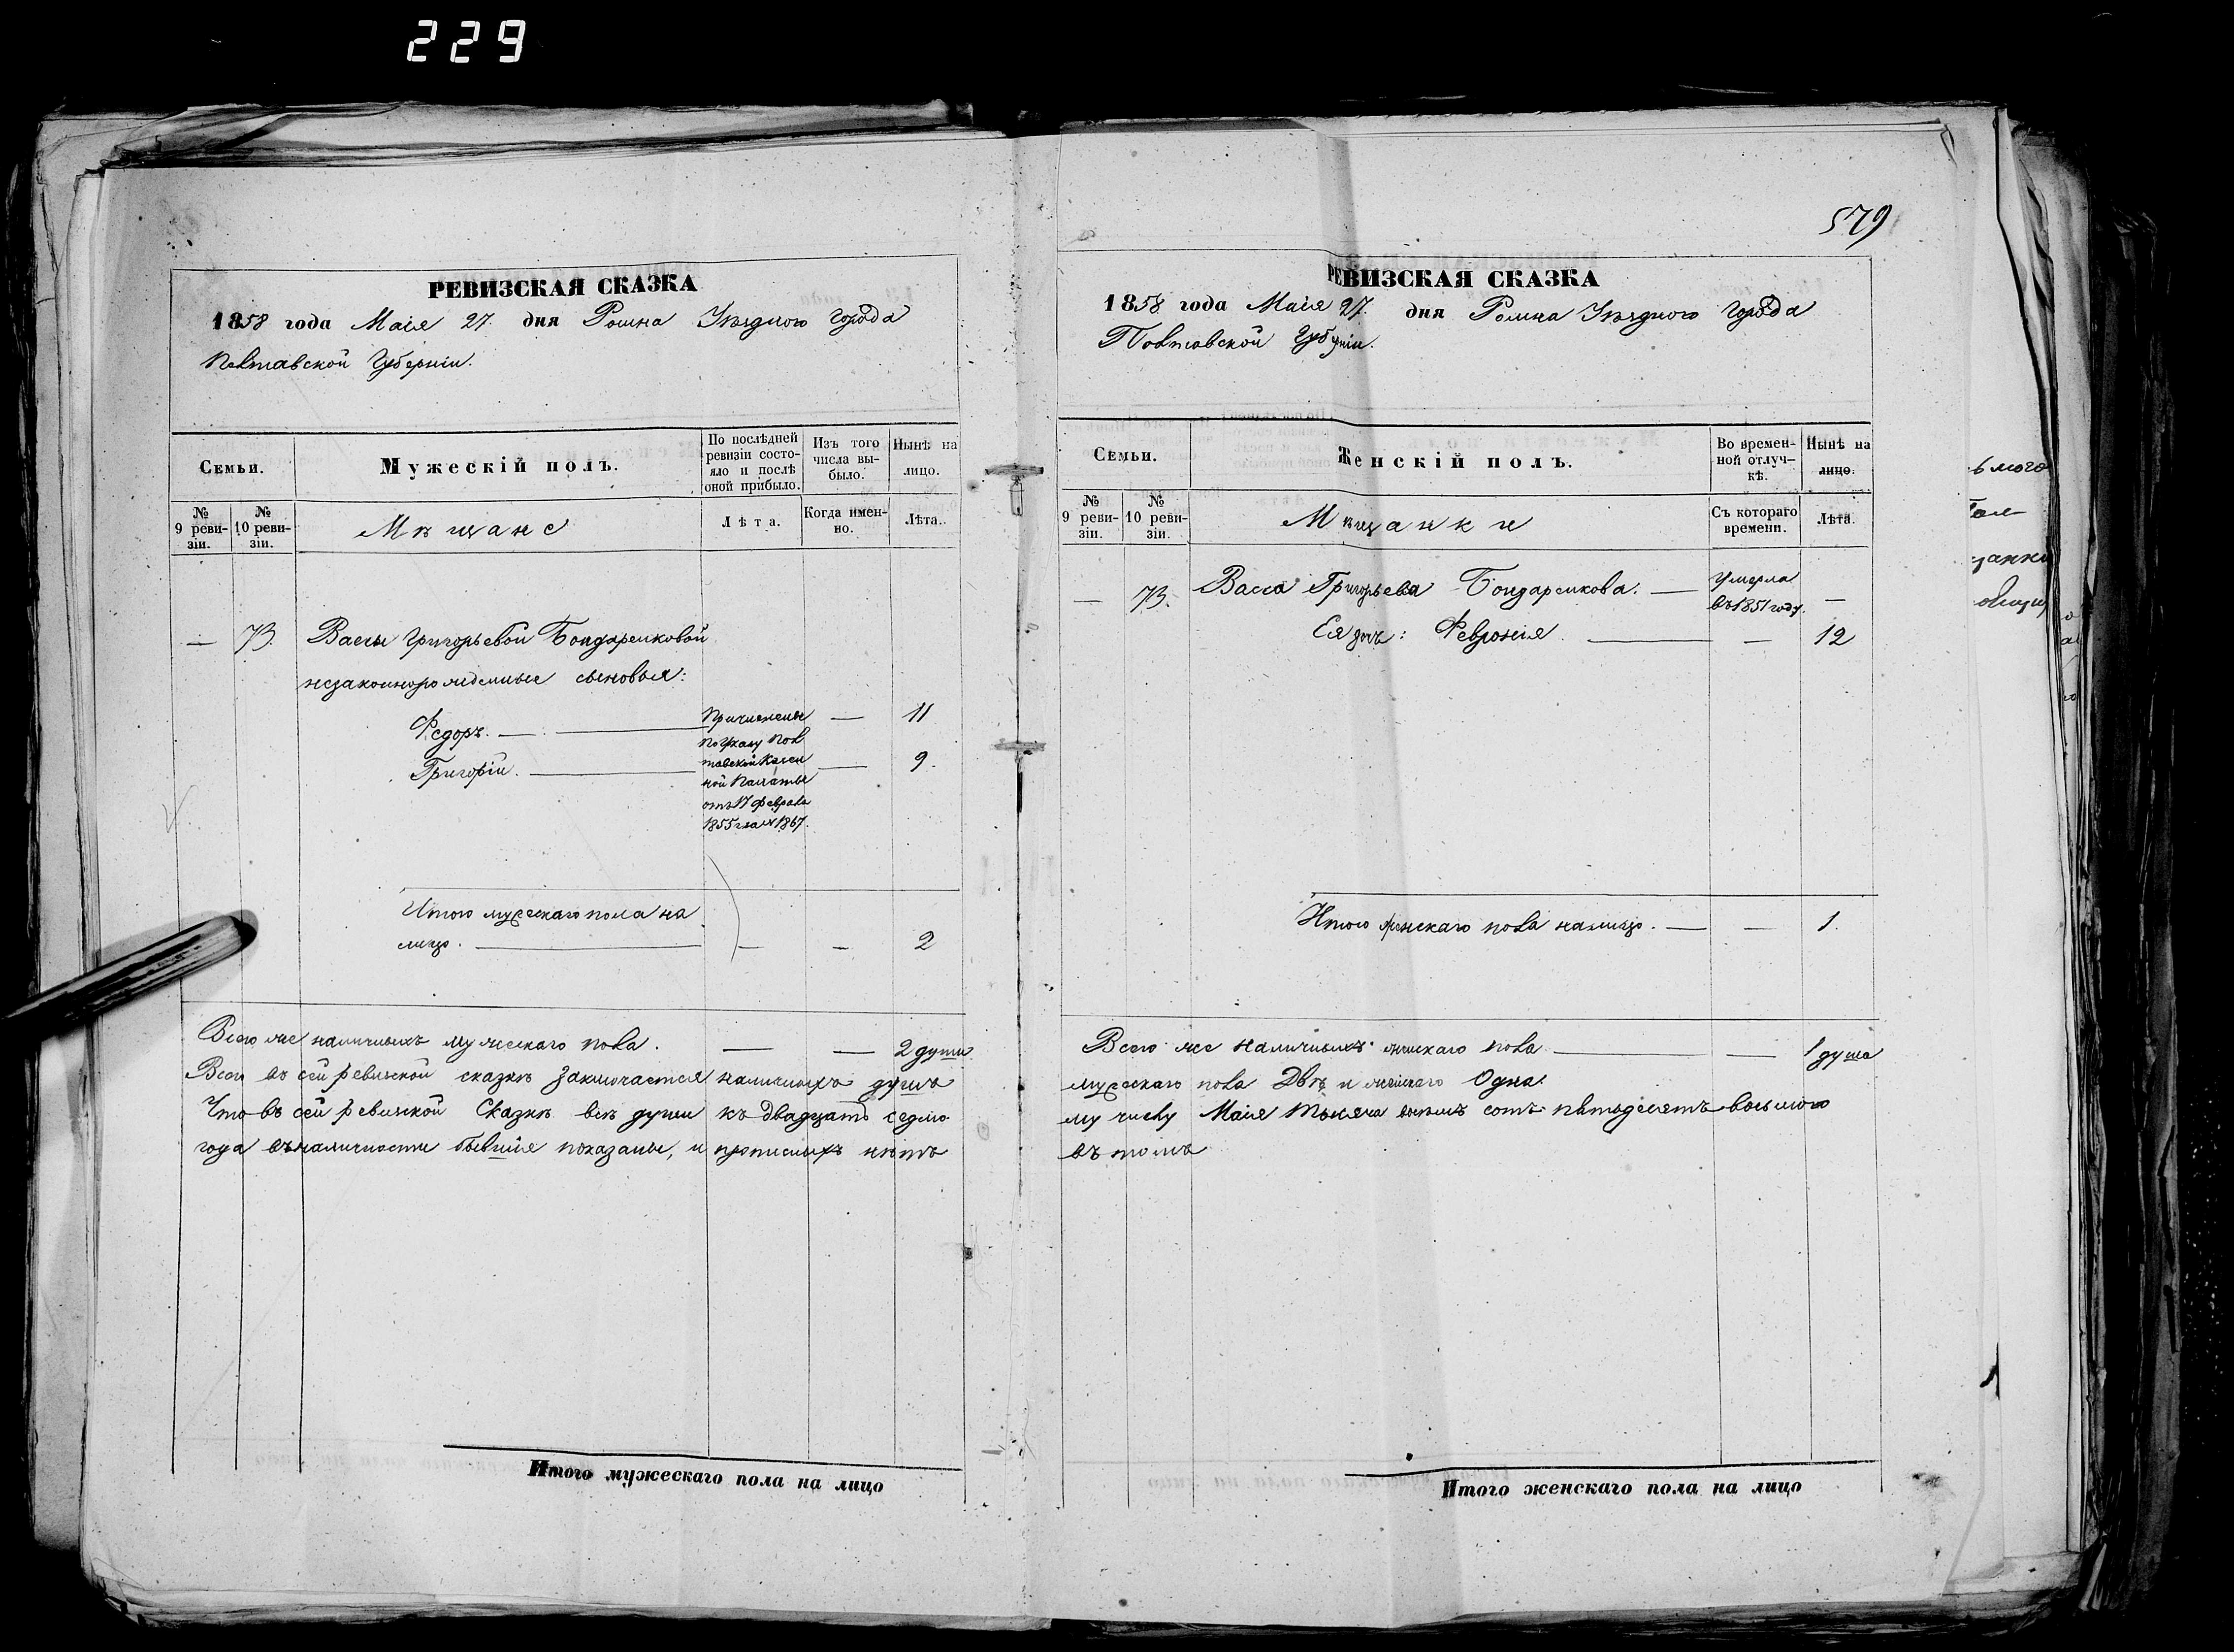 229
РЕВИЗСКАЯ СКАЗКА
1858 года Маія 27. дня Ромна Уѣзднаго города
Полтавской Губерніи.
Семьи.
Мужескій полъ.
По послѣдней ревизіи состояло и послѣ оной прибыло.
Изъ того числа выбыло.
Нынѣ на лицо.
№ 9 ревизіи.
№ 10 ревизіи.
Мѣщане
Лѣта.
Когда именно.
Лѣта.
— 73. Вассы Григорьевой Бондаренковой
незаконнорожденные сыновья:
Федоръ. — — 11
Григорій. — — 9.
Причислены
по Указу Пол
тавской Казен
ной Палаты
отъ 17 Февраля
1855 г. за № 1867.
Итого мужескаго пола на
лицо. — — — 2
Всего же наличныхъ мужескаго пола. — — 2 души
Всего въ сей ревизской сказкѣ заключается наличныхъ душъ
Что въ сей ревизской Сказкѣ всѣ души къ двадцать седмо
года въ наличности бывшія показаны, и прописныхъ нѣтъ
Итого мужескаго пола на лицо
579
РЕВИЗСКАЯ СКАЗКА
1858 года Маія 27. дня Ромна Уѣзднаго города
Полтавской Губерніи.
Семьи.
Женскій полъ.
Во временной отлучкѣ.
Нынѣ на лицо.
№ 9 ревизіи.
№ 10 ревизіи.
Мѣщанки
Съ котораго времени.
Лѣта.
— 73. Васса Григорьева Бондаренкова. — Умерла
въ 1851 году. —
Ея дочь: Февронія. — — 12
Итого женскаго пола налицо. — — 1.
Всего же наличныхъ женскаго пола — — 1 душа
мужескаго пола Двѣ и женскаго Одна.
му числу Маія тысяча восемь сотъ пятьдесятъ восьмого
въ томъ
Итого женскаго пола на лицо